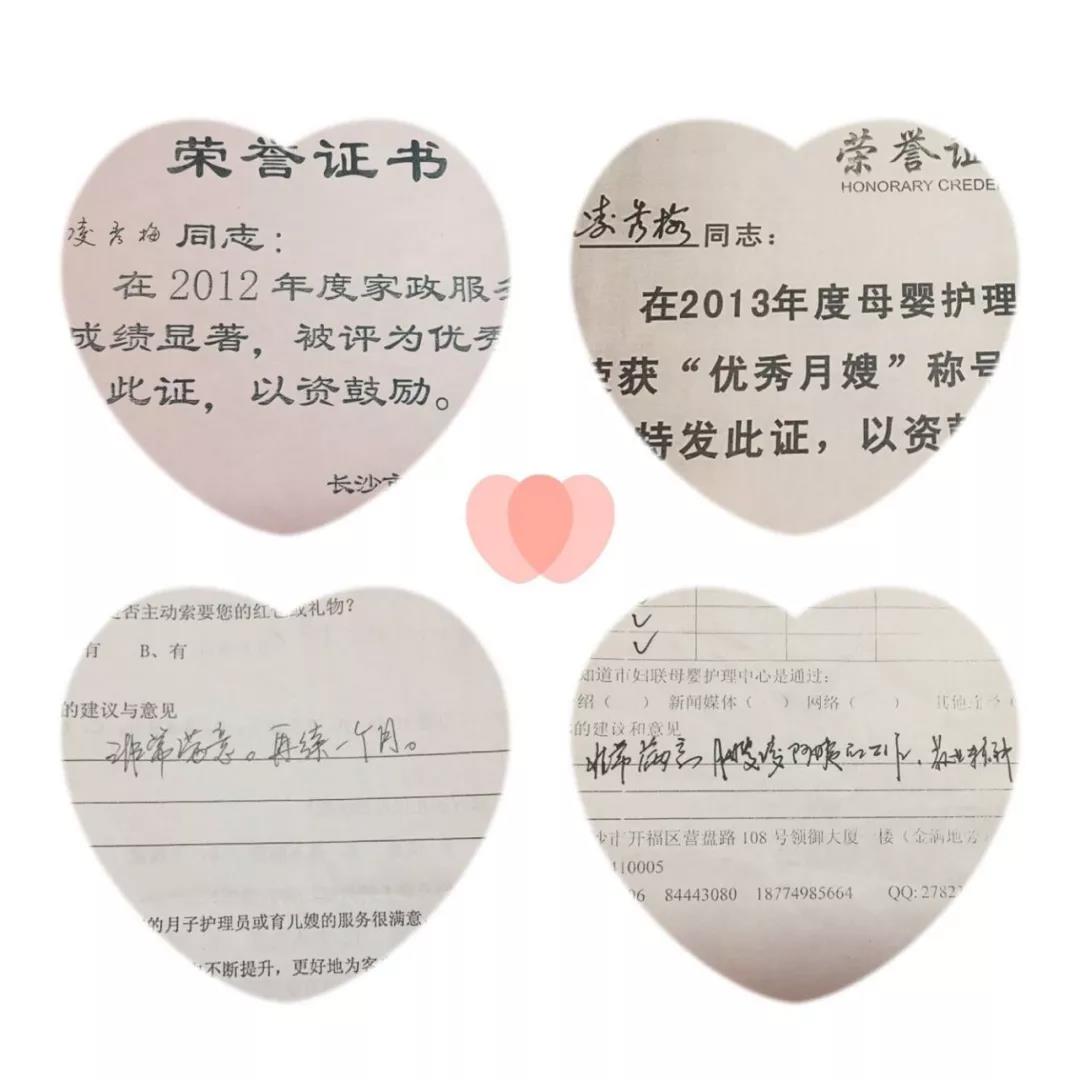 荣誉证书
凌秀梅 同志：
在 2012 年度家政服务
成绩显著，被评为优秀
此证，以资鼓励。
长沙市
荣誉证
HONORARY CREDE
凌秀梅 同志：
在2013年度母婴护理
荣获“优秀月嫂”称号
特发此证，以资鼓
是否主动索要您的红包或礼物？
有 B、有
的建议与意见
非常满意。再续一个月。
的月子护理员或育儿嫂的服务很满意
不断提升，更好地为客
知道市妇联母婴护理中心是通过：
绍（ ） 新闻媒体（ ） 网络（ ） 其他
的建议和意见
非常满意月嫂凌阿姨的工作、敬业精神
沙市开福区营盘路 108 号领御大厦 楼（金满地
410005
06 84443080 18774985664 QQ: 2782